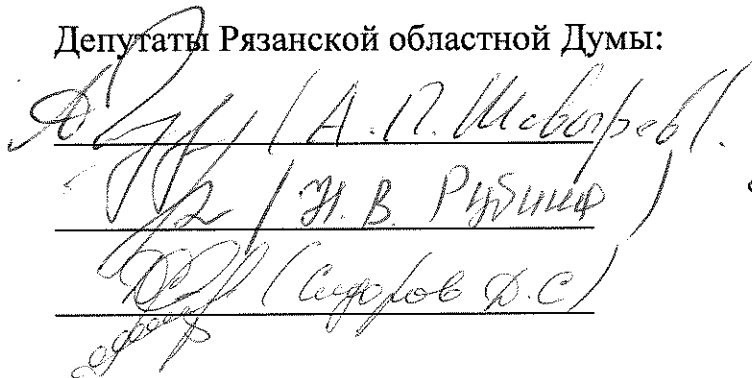 Депутаты Рязанской областной Думы:
(А.П.
/ Н.В. Рубина)
(Сидоров Д.С)